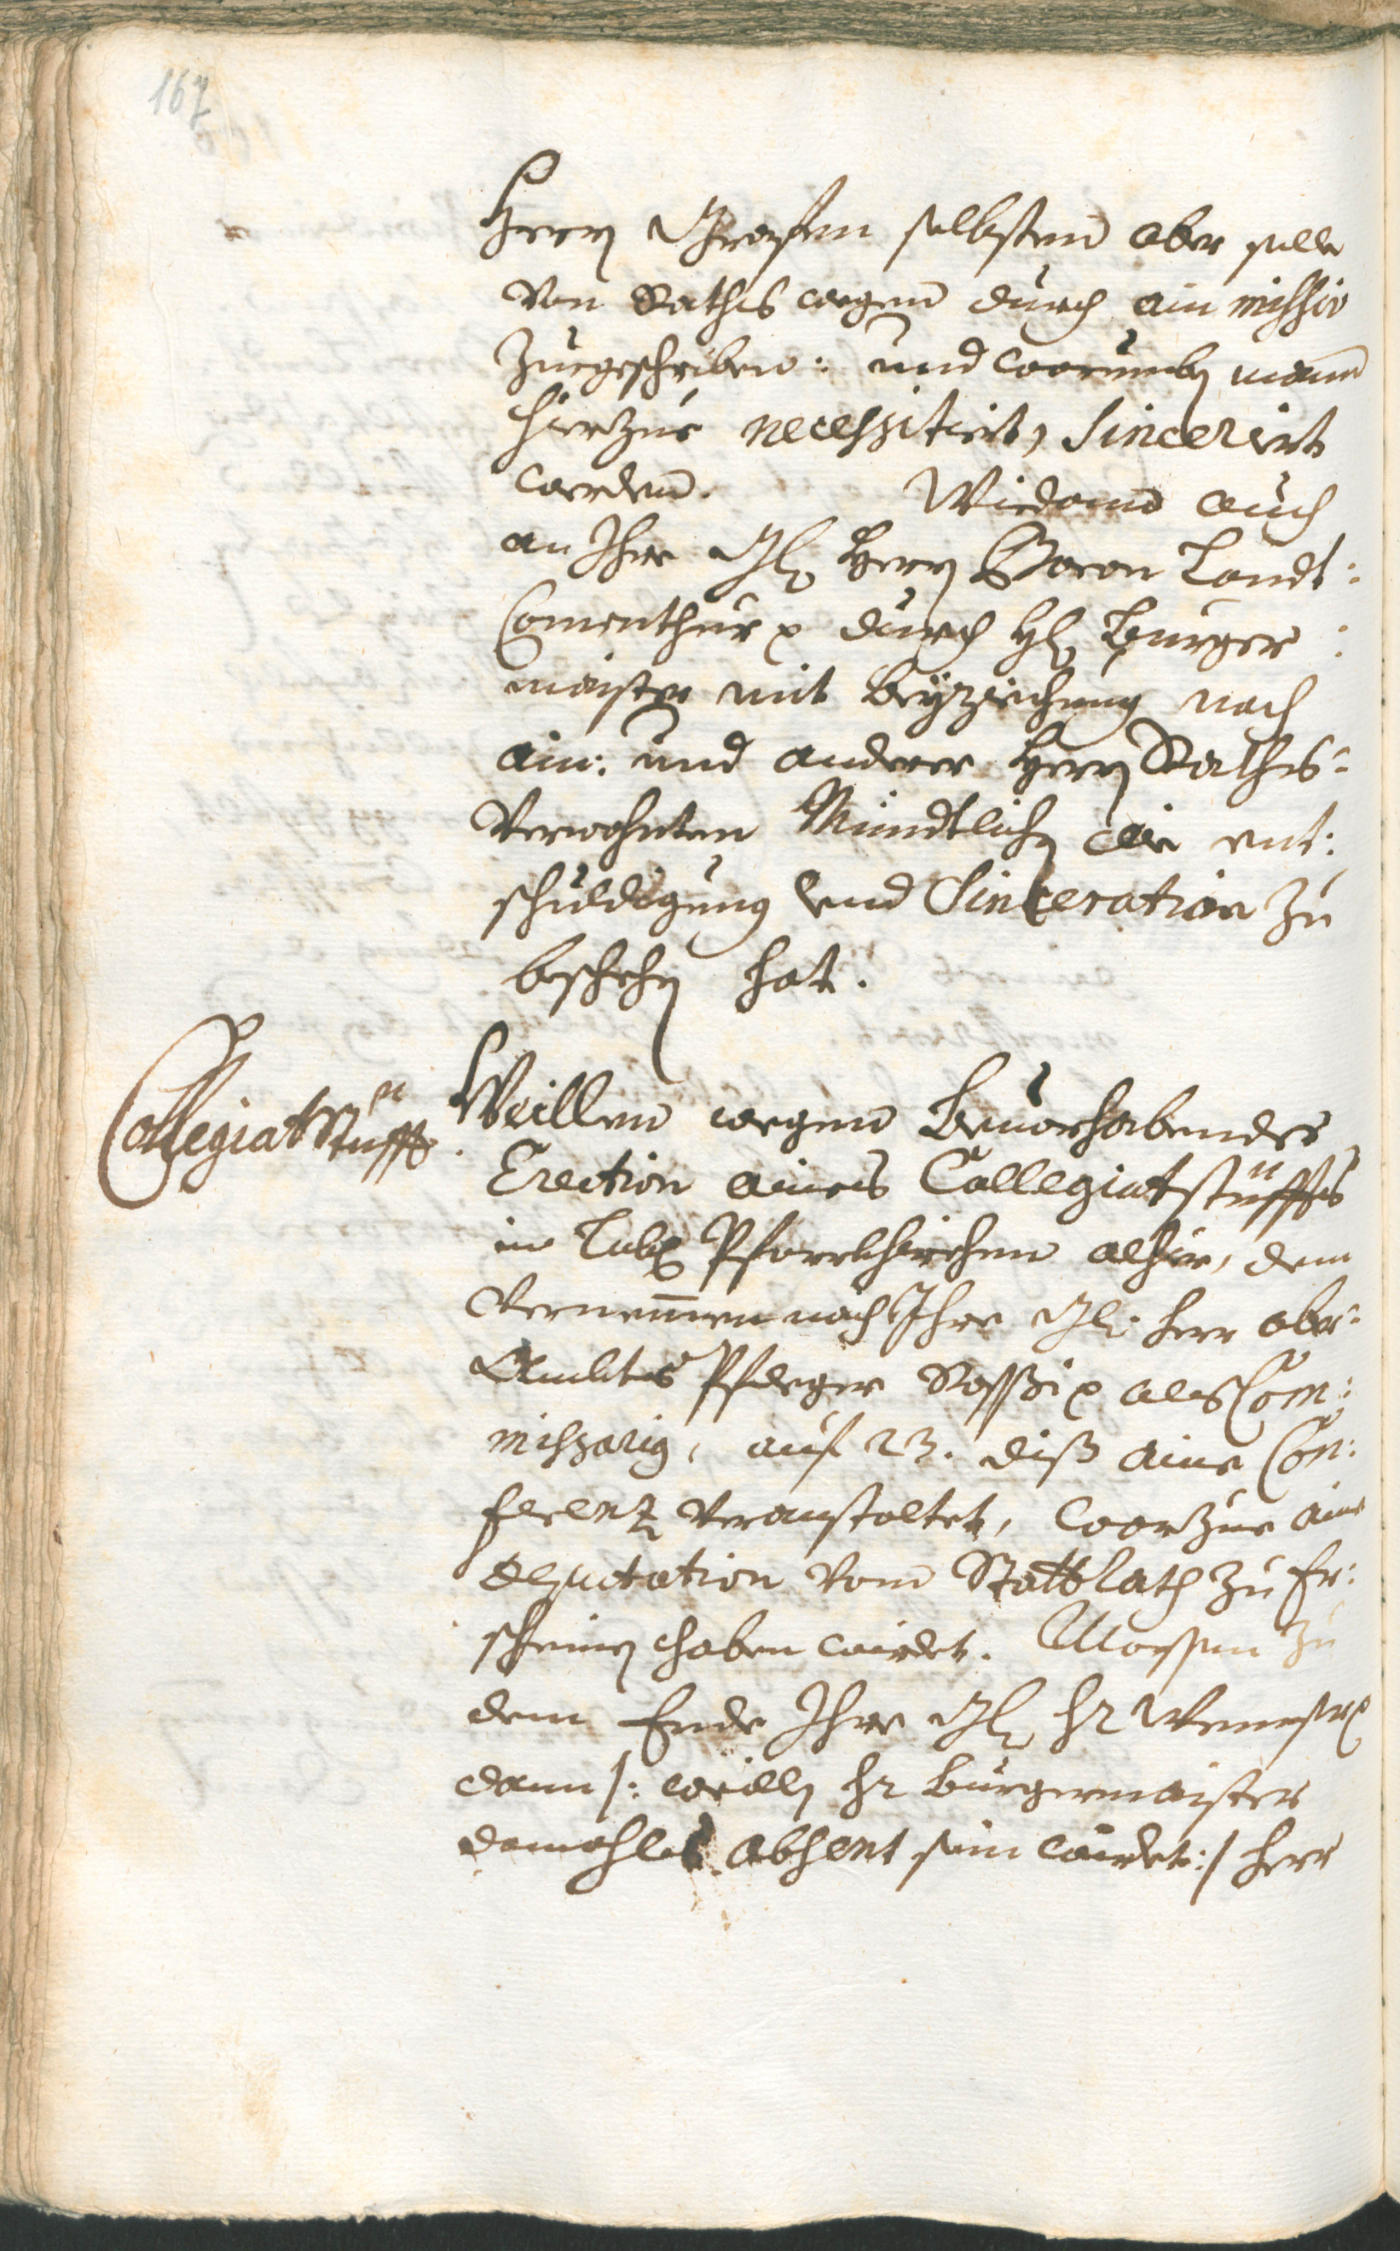 167
Herrn Grafen selbsten aber solle
von Raths wegen durch ain missiv
zuegeschriben: und warumben mann
hierzue necessitirt, sincerirt
werden. Wie dann auch
an Ihre Gl. Herrn Baron Landt:
Comenthur p durch Hl. Burger:
maister mit Beyziehung noch
ain: und anderer Herrn Raths:
verwohnten Mündtlichen die ent:
schuldigung und Sinceration zu
beschehen hat.
Collegiat Stüfft.
Weillen wegen bevorhabender
Erection aines Collegiatstüffts
in Pfarrkhirchen alhier, dem
vernemmen nach Ihre Gl. Herr ober:
Ambts Pfleger Rossi p als Com:
missarig, auf 23. diß aine Con:
ferentz veranstaltet, warzue aine
deputation vom Stattrath zu Er:
scheinen haben wirdet. Massen zu
dem Ende Ihre Gl. Hr
dann /: weillen Hr Burgermaister
damahls absent sein wirdet :/ Herr